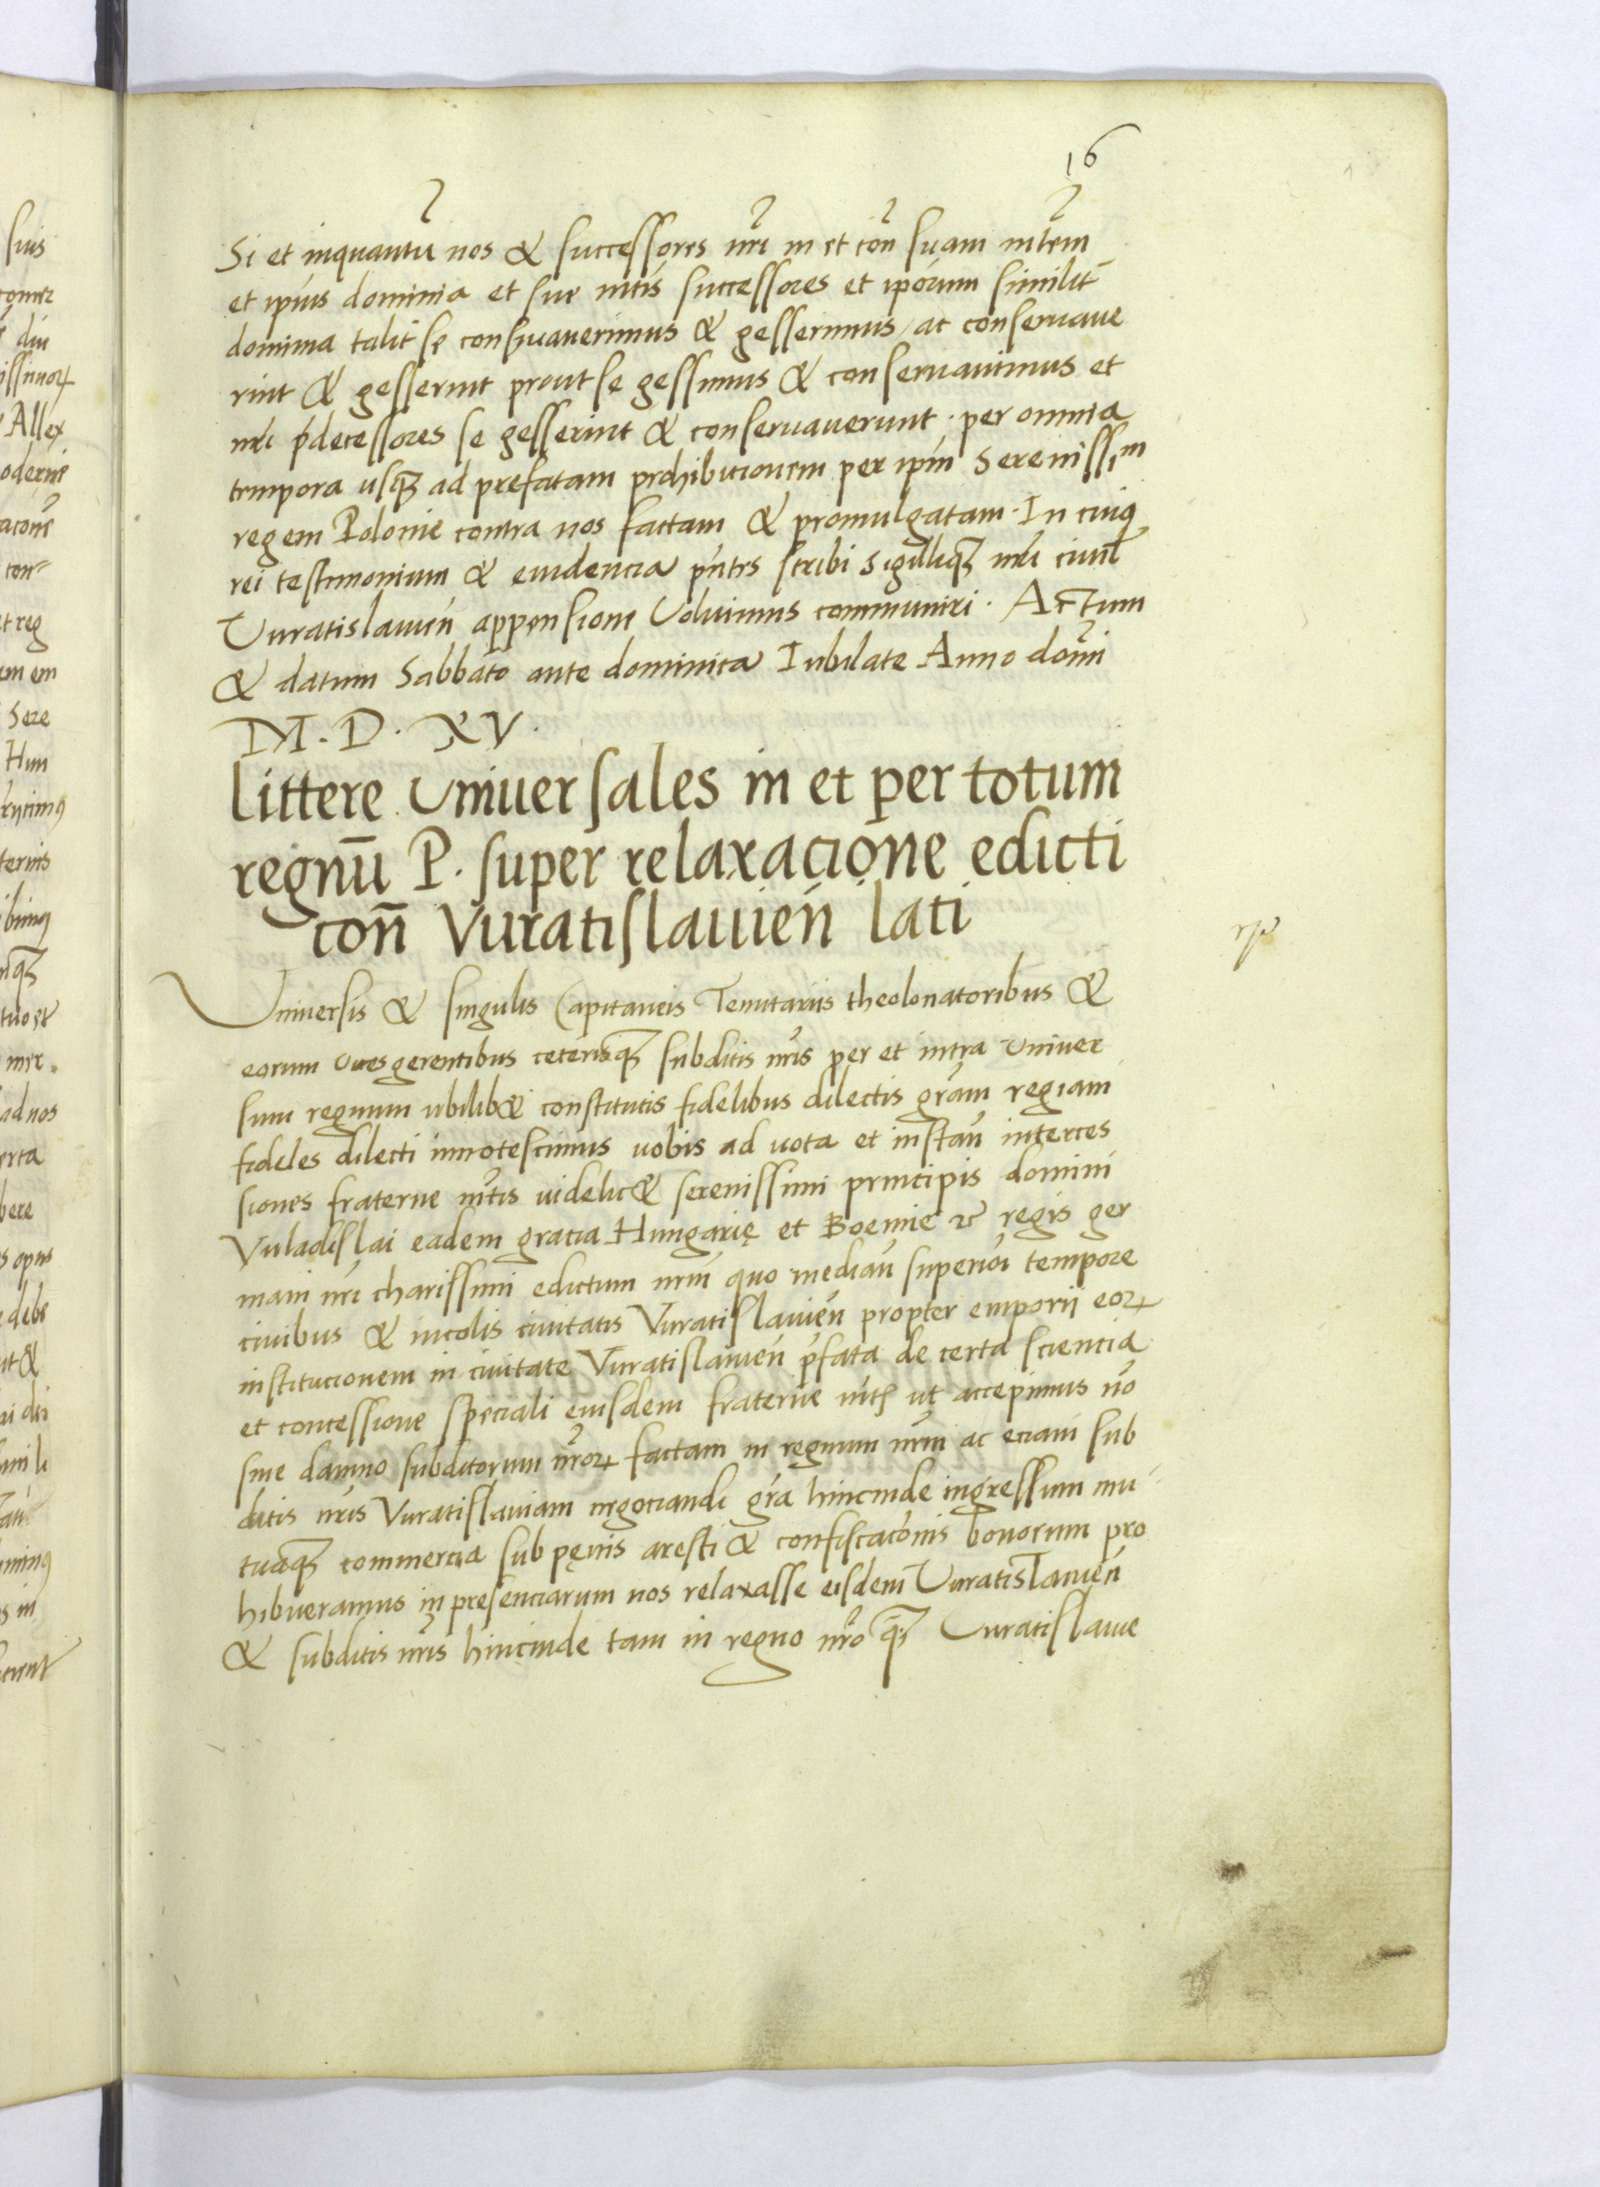 16
Si et inquantū nos & successores nr̄i in et con̄ suam mtem̄
et ip̄ius dominia et sue mtis̄ successores et ip̄orum similit̄
dominia talit̄ se conseruauerimus & gesserimus / ac conseruaue
rint & gesserint prout se gessimus & conseruauimus et
nr̄i p̄decessores se gesserint & conseruauerunt . per omnia
tempora usq; ad prefatam prohibicionem per ip̄m Serenissim
regem Polonie contra nos factam & promulgatam . In cuiꝯ
rei testimonium & euidencia p̄ntes scribi sigilliq; nr̄i ciuil̄
Vuratislauien̄ appensione Voluimus communiri . Actum
& datum Sabbato ante dominica Iubilate Anno dom̄i
M . D . XV .
littere Uniuersales in et per totum
regnū P. super relaxacione edicti
con̄ Vuratislauien̄ lati
Uniuersis & singulis Capitaneis Tenutariis theolonatoribus &
eorum Vices gerentibus ceterisq; subditis nr̄is per et intra Uniuer
sum regnum ubilib& constitutis fidelibus dilectis gra͞m regiam
fideles dilecti innotescimus uobis ad uota et instan̄ interces
siones fraterne mtis̄ uidelic& serenissimi principis domini
Vuladislai eadem gracia Hungarię et Boemie &c̄ regis ger
mani nr̄i charissimi edictum nrm̄ quo median̄ superiori tempore
ciuibus & incolis ciuitatis Vuratislauien̄ propter emporii eoꝝ
institucionem in ciuitate Vuratislauien̄ p̄fata de certa sciencia
et concessione speciali eiusdem fraterne mtis̄ ut accepimus nō
sine damno subditorum nr̄oꝝ factam in regnum nrm̄ ac eciam sub
ditis nr̄is Vuratislauiam negociandi gr̄a hincinde ingressum mu
tuaq; commercia sub pęnis aresti & confiscacōnis bonorum pro
hibueramus in presenciarum nos relaxasse eisdem Vuratislauien̄
& subditis nr̄is hincinde tam in regno nr̄o q̄; Vuratislauie